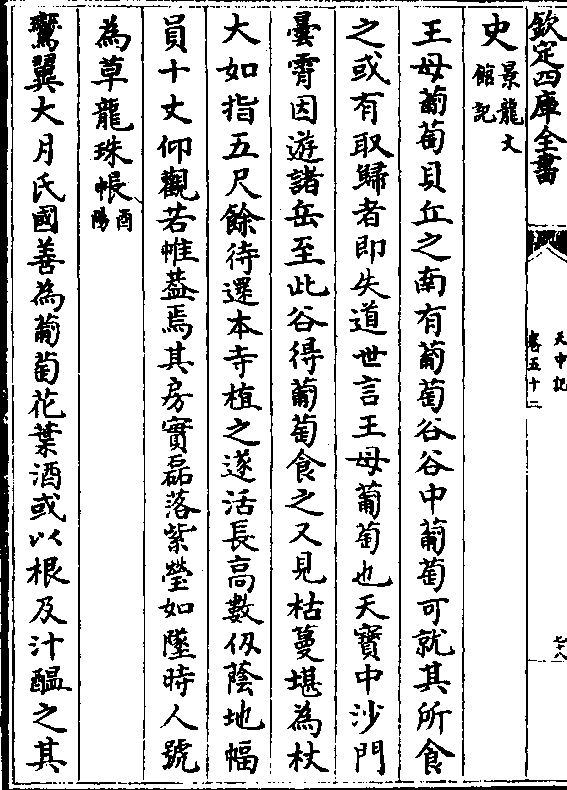 欽定四庫全書
天中記
卷五十二
七十八
史景龍文館記
王母葡萄貝丘之南有葡萄谷谷中葡萄可就其所食
之或有取歸者即失道世言王母葡萄也天寶中沙門
曇霄因遊諸岳至此谷得葡萄食之又見枯蔓堪為杖
大如指五尺餘待還本寺植之遂活長高數仭蔭地幅
員十丈仰觀若帷葢焉其房實磊落紫瑩如墜時人號
為草龍珠帳酉陽
鷰翼大月氏國善為葡萄花葉酒或以根及汁醖之其